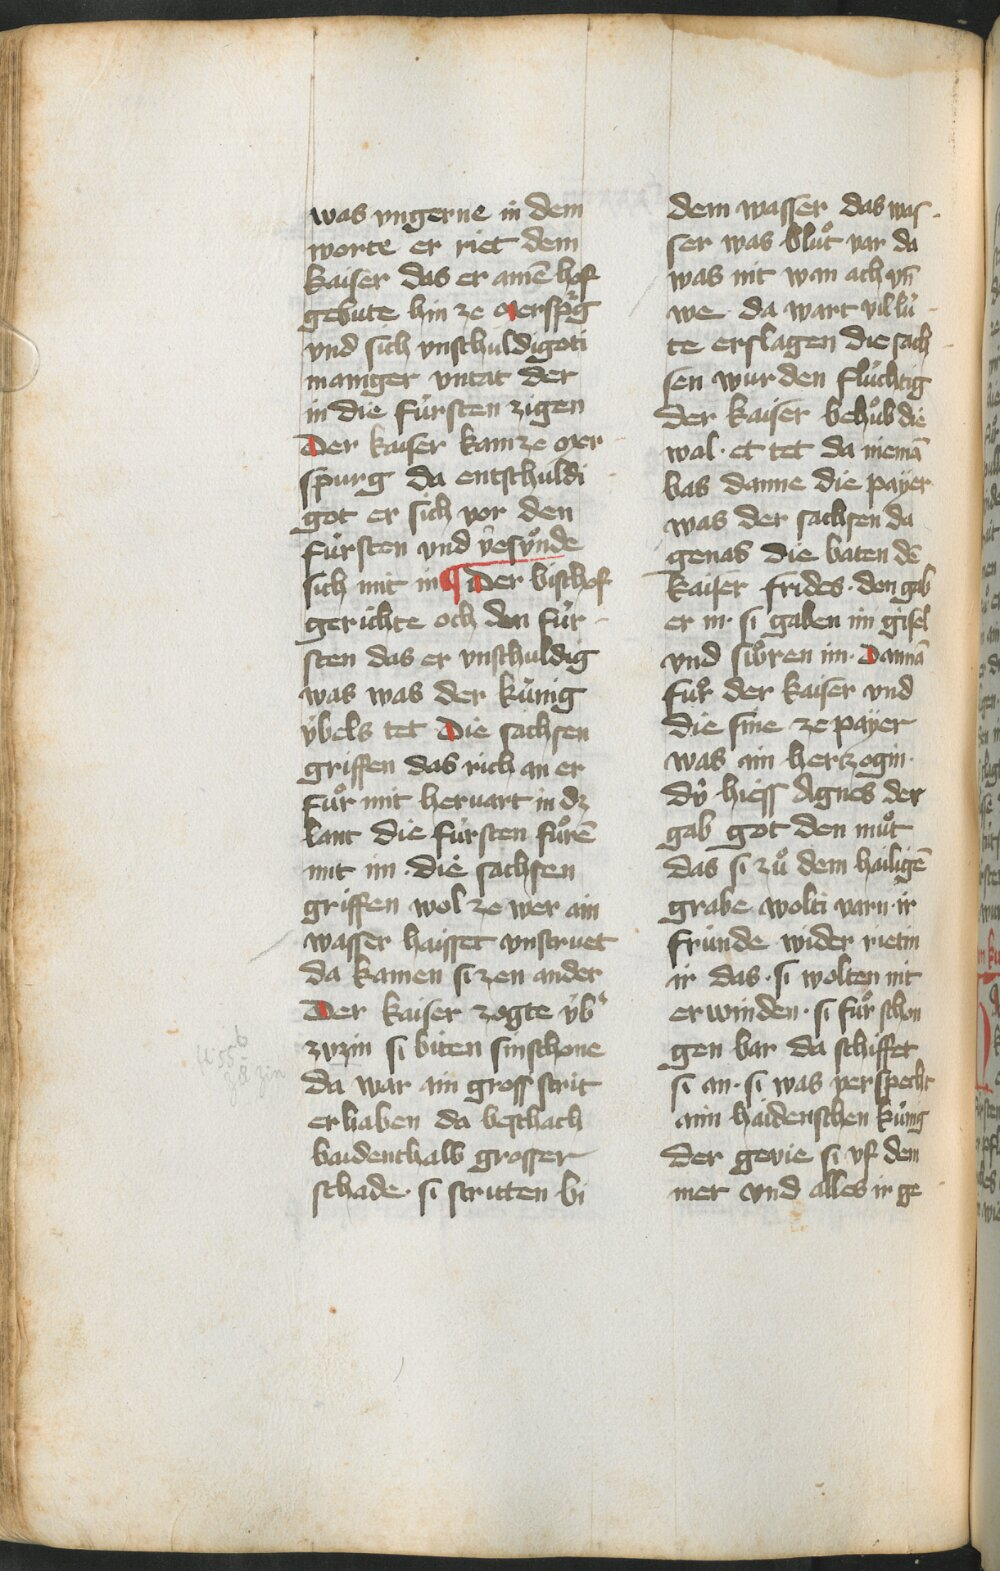 was vngerne in dem
worte er riet dem
kaiser das er ainē hof
gebute hin ze Merspͬg
vnd sich vnschuldigoti
maniger vntat der
in die fúrsten zigen
Der kaiser kam ze mer
spurg da entschuldi
got er sich vor den
fúrsten vnd v̈esuͦnde
sich mit in ¶ Der bischof
gerichte och den fúr
sten das er vnschuldig
was was der kúnig
ẏbels tet Die sachsen
griffen das rich an er
fuͦr mit heruart in dz
lant die fúrsten fuͦrē
mit im · die sachsen
griffen wol ze wer ain
wasser haisset vnstruet
da kamen si zen ander
Der kaiser zogte v́bͬ
zvzin si biten sin schone
da war ain gross strit
erhaben da beschach
baidenthalb grosser
schade · si stritten bi
dem wasser das was
ser was bluͦt var da
was nit wan ach vn̄
we · da wart vil lú
te erslagen die sach
sen wurden fluchtig
der kaiser behuͦb die
wal · et tet da niemā
bas danne die payer
was der sachsen da
genas die baten dē
kaiser frides · den gab
er in · si gaben im gisel
vnd suͦren im · Dannā
fuͦr der kaiser vnd
die sine ze payer
was ain hertzogin ·
dv́ hiess Agnes der
gab got den muͦt
das si zuͦ dem hailigē
grabe wolti varn · ir
frúnde wider rietin
ir das · si wolten nit
erwinden · si fuͦr schon
gen bar da schiffet
si an · si was verspecht
ain haidenschen kúnig
der gevie si vf dem
mer vnd alles ir ge